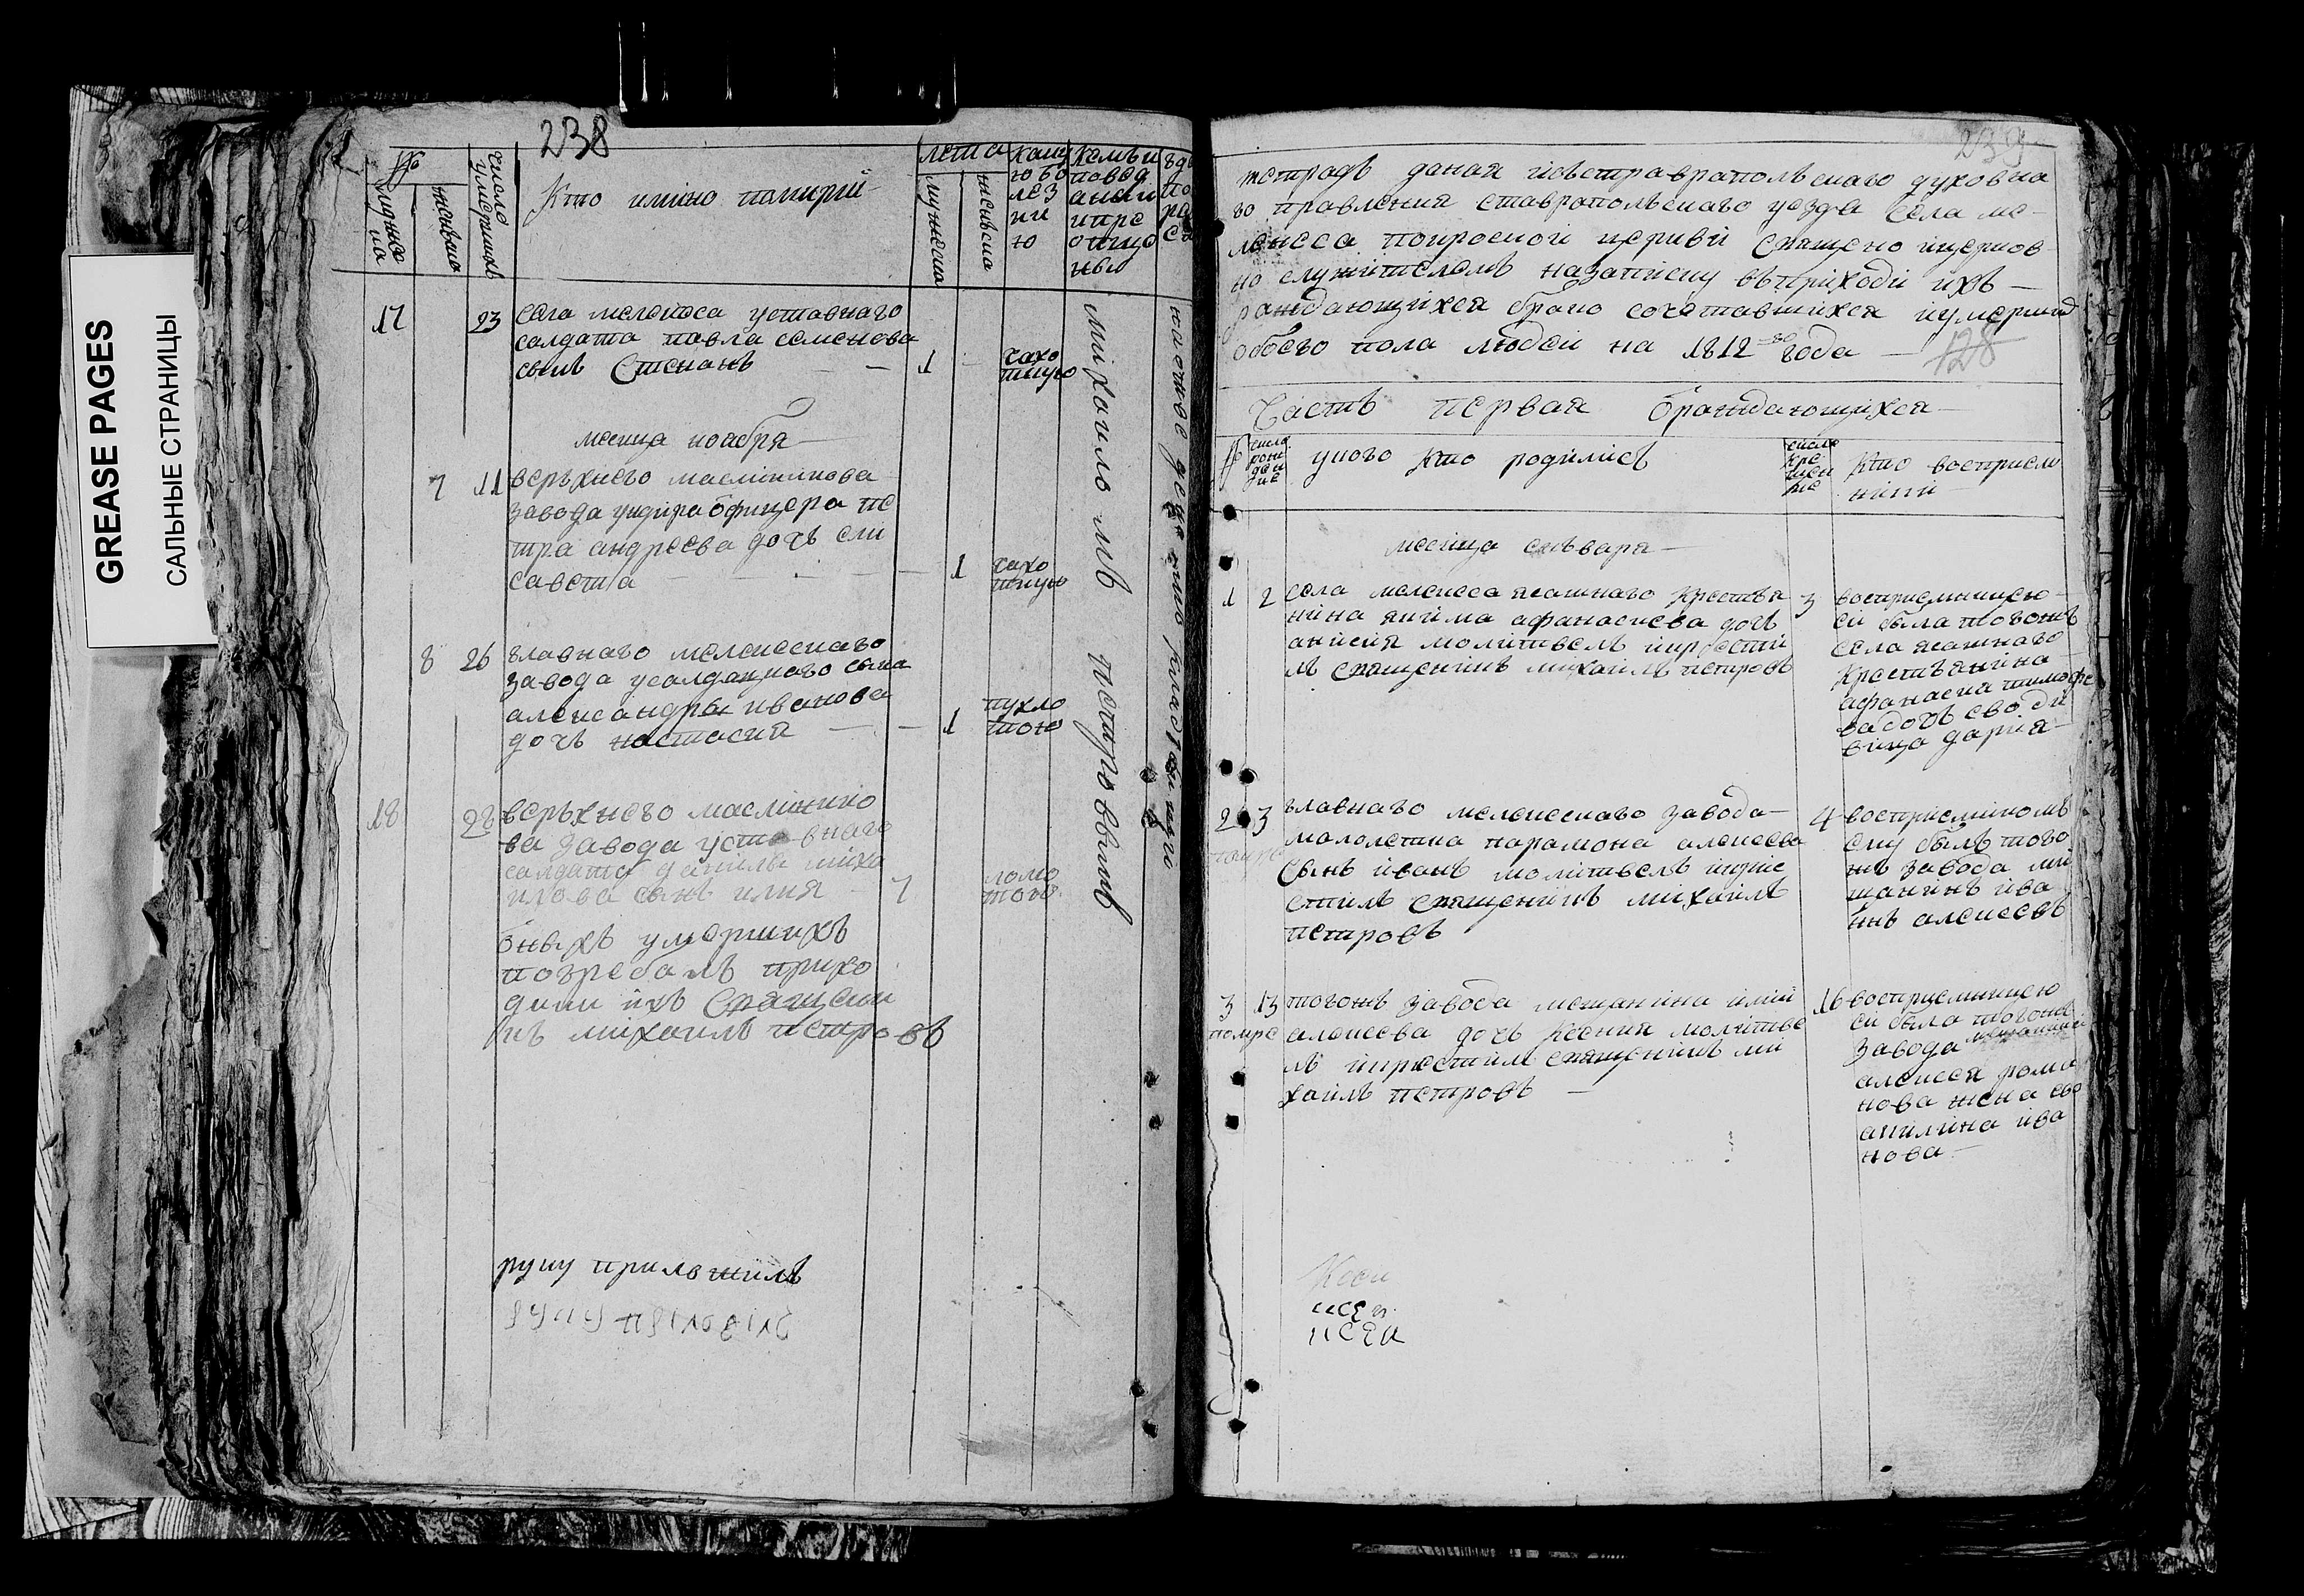 GREASE PAGES
САЛЬНЫЕ СТРАНИЦЫ
238
№
мужеска
женска
число умершихъ
Кто имяно помирли
лета
мужеска
женска
какую болезнию
кемъ
17 23 села мелекеса уставнаго
салдата павла семенова
сынъ Степанъ 1 чахоткую
месеца ноября
7 11 верьхнего маслиникова
завода ундираофицера пе
тра андреева дочь ели
савета 1 чахоткую
8 26 главнаго мелекескаго
завода усалдацкаго сына
александры иванова
дочь настасия 1 пухлотою
18 28 верьхнего маслинико
ва завода уставнаго
салдата данилы миха
илова сынъ илия 7 ломотою
оныхъ умершихъ
погребалъ прихо
цкии ихъ Священи
къ михаилъ петровъ
михаилъ петровъ
руку приложилъ
239
тетрадь даная исъставрапольскаго духовна
го правления ставропольскаго уезда села ме
лекеса покроской церкви Священо ицерков
но служителемъ назаписку вприходи ихъ
раждающихся брако сочетавшихся иумерших
обоего пола людеи на 1812 го года
128
Часть первая ораждающихся
№
число рождение
укого кто родились
число крещение
Кто восприемники
месеца енъваря
1 2 села мелекеса ясашнаго крестья
нина якима афанасиева дочь
анисия молитвелъ икрести
лъ священикъ михаилъ петровъ
3 восприемницею
еи была тогожъ
села ясашнаго
крестьянина
афанасия тимофе
ва дочь ево ди
вица дария
2 3 главнаго мелекескаго завода
малолетка парамона алексева
Сынъ иванъ молитвелъ икре
стилъ священикъ михаилъ
петровъ
4 восприемникомъ
ему былъ того
жъ завода ме
щанинъ ива
нъ алексевъ
3 13 тогожъ завода мещанина
помре
алексева дочь ксения молитве
лъ икрестилъ священикъ ми
хаилъ петровъ
16 восприемницею
еи была тогожъ
завода мещанина
алексея рома
нова жена ево
акилина ива
нова